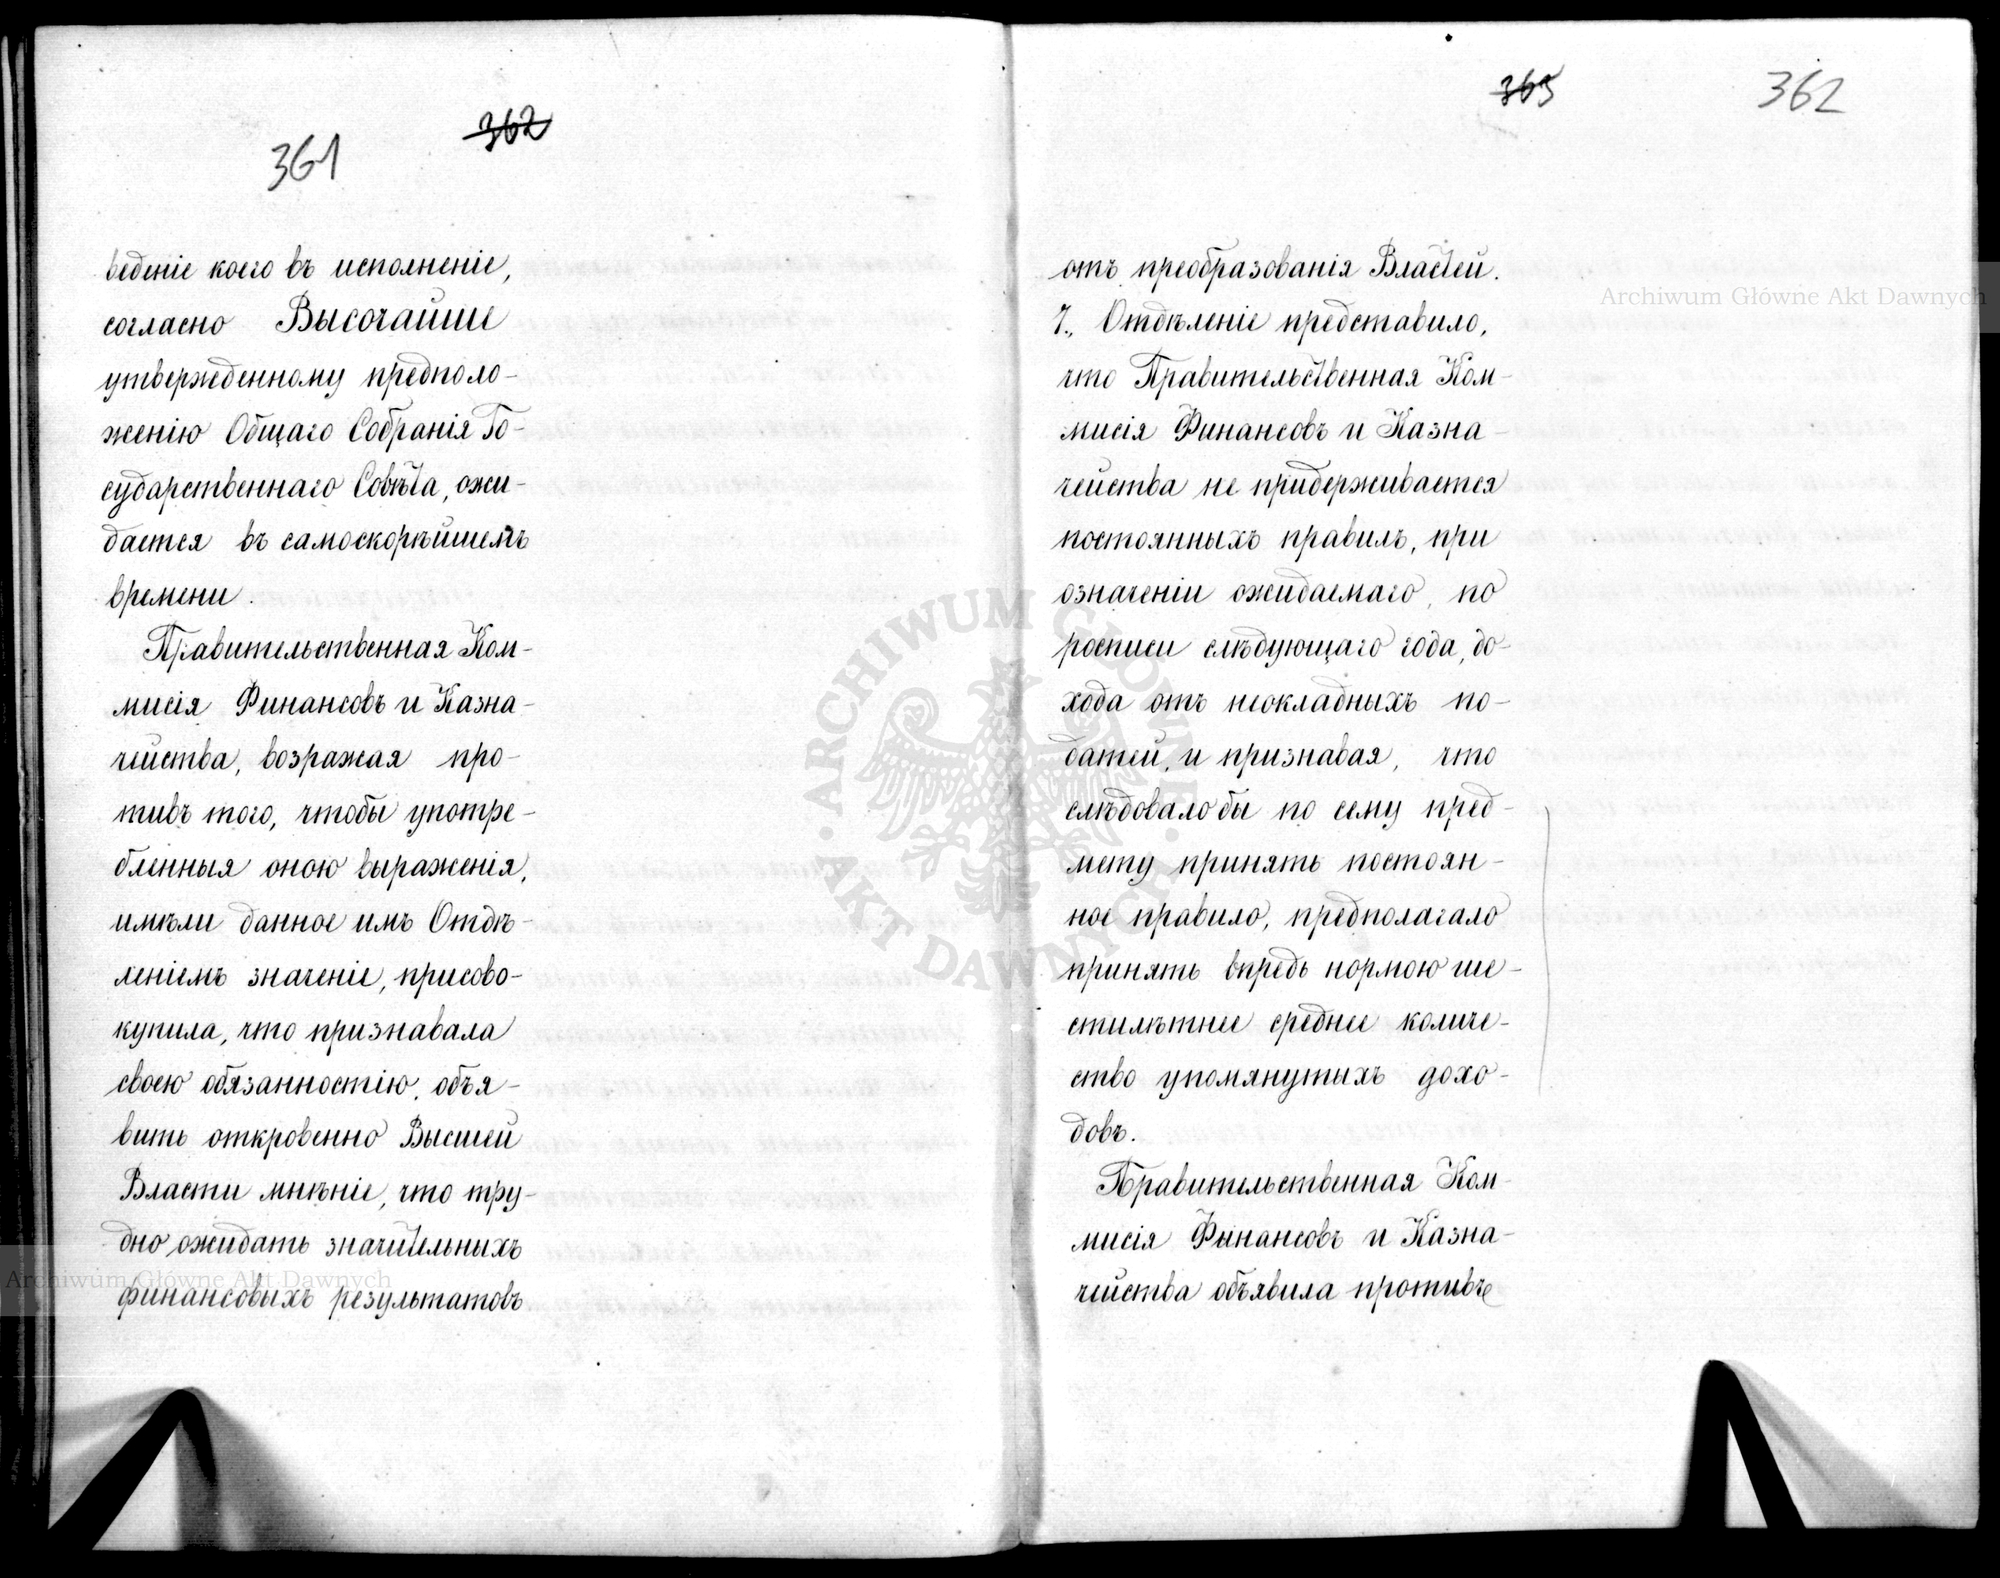 361
362
веденіе коего въ исполненіе,
согласно Высочайше
утвержденному предполо-
женію Общаго Собранія Го-
сударственнаго Совѣта, ожи-
дается въ самоскорѣйшемъ
времени.
Правительственная Ком-
мисія Финансовъ и Казна-
чейства, возражая про-
тивъ того, чтобы употре-
бленныя оною выраженія,
имѣли данное имъ Отдѣ-
леніемъ значеніе, присово-
купила, что признавала
своею обязанностію, объя-
вить откровенно Высшей
Власти мнѣніе, что тру-
дно ожидать значительныхъ
финансовыхъ результатовъ
363
362
отъ преобразованія Властей.
7., Отдѣленіе представило,
что Правительственная Ком-
мисія Финансовъ и Казна-
чейства не придерживается
постоянныхъ правилъ, при
означеніи ожидаемаго, по
росписи слѣдующаго года, до-
хода отъ неокладныхъ по-
датей, и признавая, что
слѣдовало бы по сему пред-
мету принять постоян-
ное правило, предполагало
принять впредь нормою ше-
стилѣтнее среднее количе-
ство упомянутыхъ дохо-
довъ.
Правительственная Ком-
мисія Финансовъ и Казна-
чейства объявила противъ
Archiwum Główne Akt Dawnych
Archiwum Główne Akt Dawnych
ARCHIWUM GŁÓWNE AKT DAWNYCH